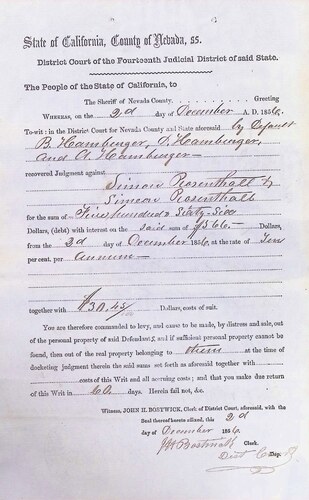 State of California, County of Nevada, ss.
District Court of the Fourteenth Judicial District of said State.
The People of the State of California, to
The Sheriff of Nevada County Greeting
WHEREAS, on the 2d day of December A. D. 1856.
To-wit: in the District Court for Nevada County and State aforesaid by Default
B. Hamburger, D. Hamburger,
and A. Hamburger
recovered Judgment against
Simon Rosenthall &
Simeon Rosenthall
for the sum of Five hundred & Sixty-Six
Dollars, (debt) with interest on the said sum of $566. Dollars,
from the 2d day of December 1856, at the rate of Tens
per cent. per Annum
together with $30.45/ Dollars, costs of suit.
You are therefore commanded to levy, and cause to be made, by distress and sale, out
of the personal property of said Defendants and if sufficient personal property cannot be
found, then out of the real property belonging to them at the time of
docketing judgment therein the said sums set forth as aforesaid together with
costs of this Writ and all accruing costs; and that you make due return
of this Writ in 60 days. Herein fail not, &c.
Witness, JOHN H. BOSTWICK, Clerk of District Court, aforesaid, with the
Seal thereof hereto affixed, this 2d
day of December 1856.
J H Bostwick Clerk.
Dist C
Dep.